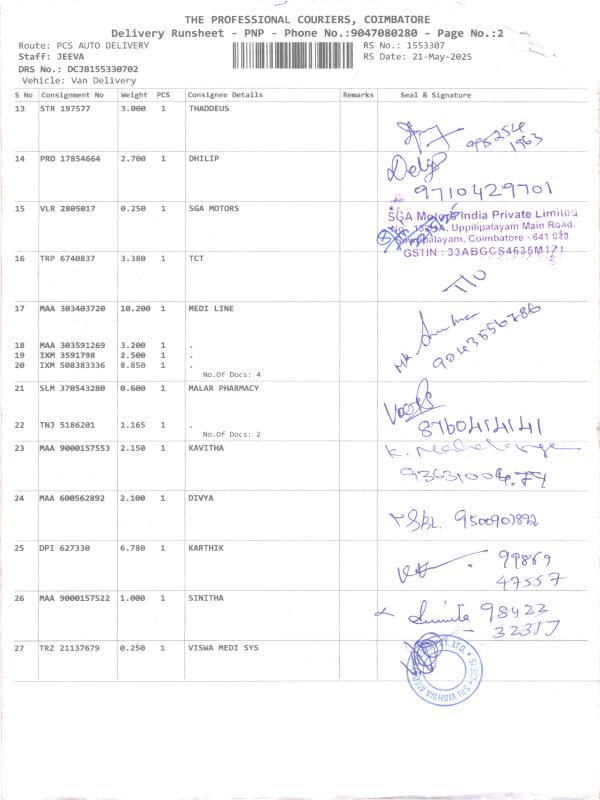 THE PROFESSIONAL COURIERS, COIMBATORE
Delivery Runsheet - PNP - Phone No.:9047080280 - Page No.:2
Route: PCS AUTO DELIVERY RS No.: 1553307
Staff: JEEVA RS Date: 21-May-2025
DRS No.: DCJB155330702
Vehicle: Van Delivery
S No Consignment No Weight PCS Consignee Details Remarks Seal & Signature
13 STR 197577 3.000 1 THADDEUS
995254
1963
14 PRO 17854664 2.700 1 DHILIP
9710429701
15 VLR 2805017 0.250 1 SGA MOTORS
SGA Motors India Private Limited
Uppilipalayam Main Road,
Coimbatore - 641
GSTIN : 33ABGCS4635M1Z1
16 TRP 6740837 3.380 1 TCT
17 MAA 303403720 10.200 1 MEDI LINE
18 MAA 303591269 3.200 1 .
19 IXM 3591798 2.500 1 .
20 IXM 508383336 8.850 1 .
No.Of Docs: 4
21 SLM 370543280 0.600 1 MALAR PHARMACY
22 TNJ 5186201 1.165 1 .
No.Of Docs: 2
8760414141
23 MAA 9000157553 2.150 1 KAVITHA
24 MAA 600562892 2.100 1 DIVYA
25 DPI 627330 6.780 1 KARTHIK
99869
47557
26 MAA 9000157522 1.000 1 SINITHA
98422
27 TRZ 21137679 0.250 1 VISWA MEDI SYS